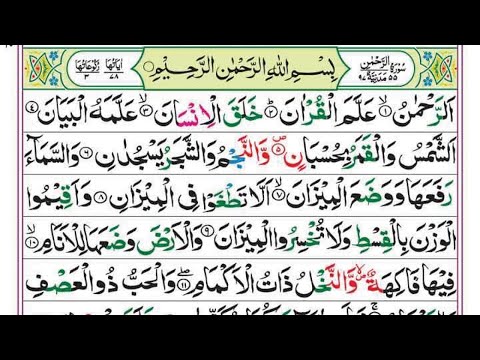 سُوْرَةُ الرَّحْمٰنِ ٥٥ مَدَنِيَّةٌ ٩٧ بِسْمِ اللّٰهِ الرَّحْمٰنِ الرَّحِيْمِ اٰيَاتُهَا ٧٨ رُكُوْعَاتُهَا ٣
اَلرَّحْمٰنُ ۙ﴿۱﴾ عَلَّمَ الْقُرْاٰنَ ؕ﴿۲﴾ خَلَقَ الْاِنْسَانَ ۙ﴿۳﴾ عَلَّمَهُ الْبَيَانَ ﴿۴﴾
اَلشَّمْسُ وَالْقَمَرُ بِحُسْبَانٍ ۪﴿۵﴾ وَّالنَّجْمُ وَالشَّجَرُ يَسْجُدٰنِ ﴿۶﴾ وَالسَّمَآءَ
رَفَعَهَا وَوَضَعَ الْمِيْزَانَ ۙ﴿۷﴾ اَلَّا تَطْغَوْا فِى الْمِيْزَانِ ﴿۸﴾ وَاَقِيْمُوا
الْوَزْنَ بِالْقِسْطِ وَلَا تُخْسِرُوا الْمِيْزَانَ ﴿۹﴾ وَالْاَرْضَ وَضَعَهَا لِلْاَنَامِ ۙ﴿۱۰﴾
فِيْهَا فَاكِهَةٌ ۪ۙ وَّالنَّخْلُ ذَاتُ الْاَكْمَامِ ۖ﴿۱۱﴾ وَالْحَبُّ ذُو الْعَصْفِ